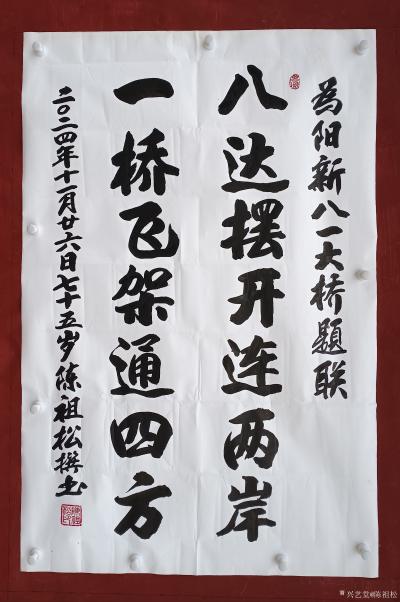 为阳新八一大桥题联
八达摆开连两岸
一桥飞架通四方
二〇二四年十一月廿六日七十五岁陈祖松撰书
兴艺堂陈祖松